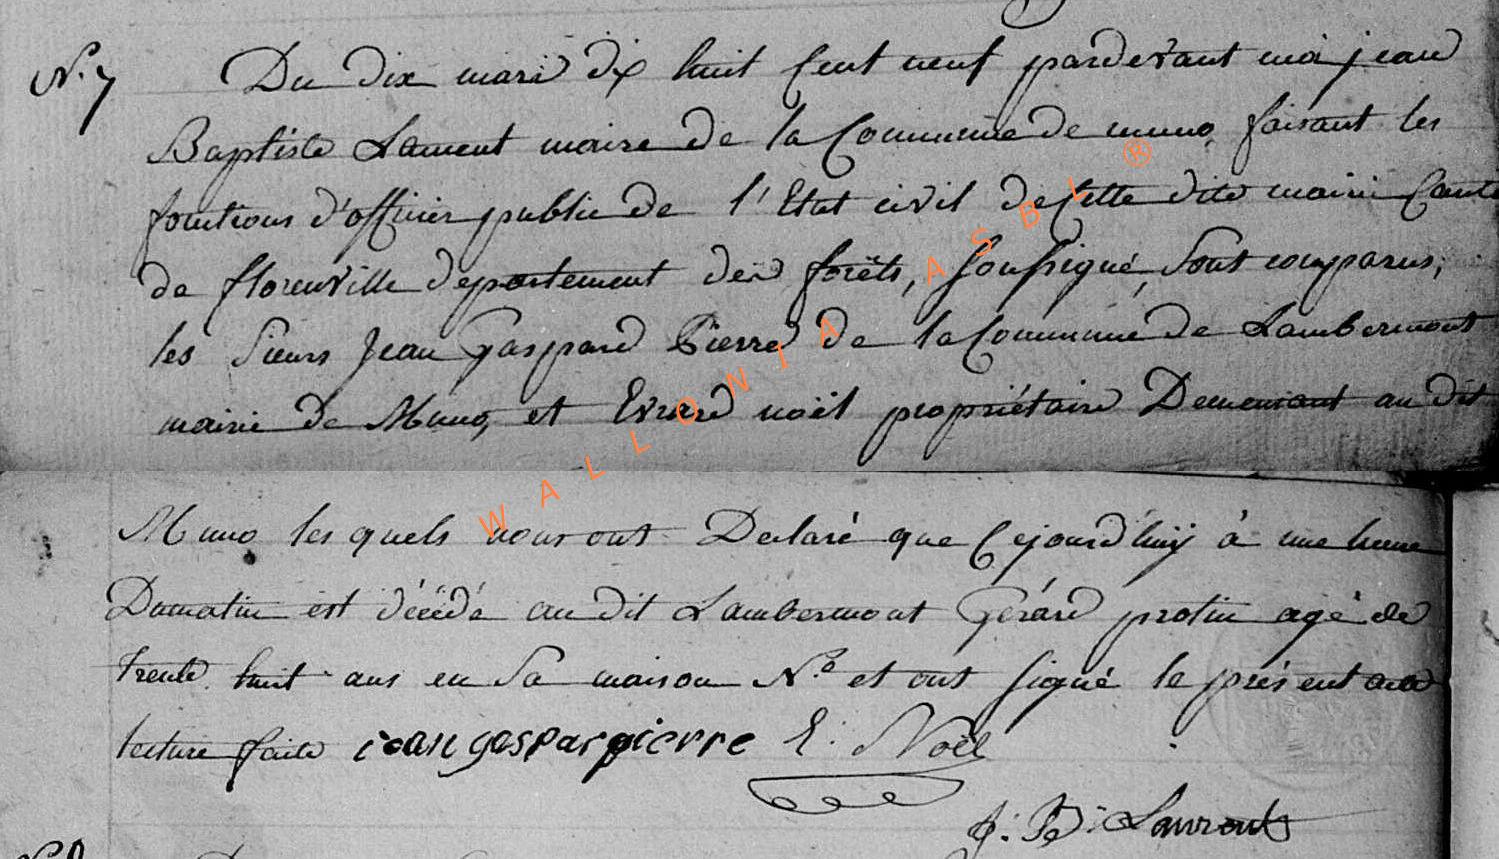 N.7 Du dix mars dix huit Cent neuf pardevant moi jean
Baptiste Laurent maire de la Commune de muno faisant les
fonctions d'officier public de l'Etat civil de Cette dite mairie Canto
de florenville departement des forêts, soussigné, Sont comparus,
les Sieurs Jean Gaspard Pierre de la Commune de Lambermont
mairie de Muno, et Evrard noël propriétaire Demeurant au dit
Muno les quels nous ont Declaré que Cejourd'huij à une heure
Dumatin est décédé au dit Lambermont Gérard protin agé de
trente huit ans en Sa maison N.º et ont signé le présent acte
lecture faite jean gaspar pierre E: Noël
J: B: Laurent
WALLONIA ASBL ®